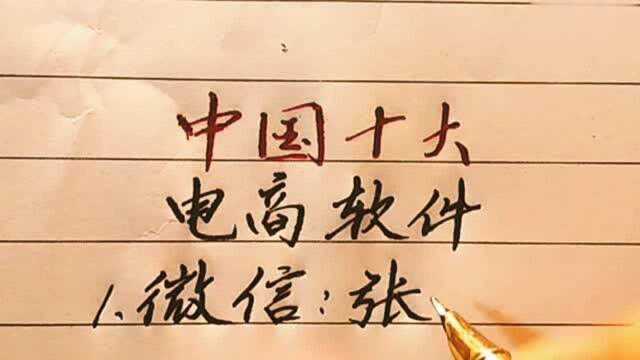 中国十大
电商软件
1.微信:张